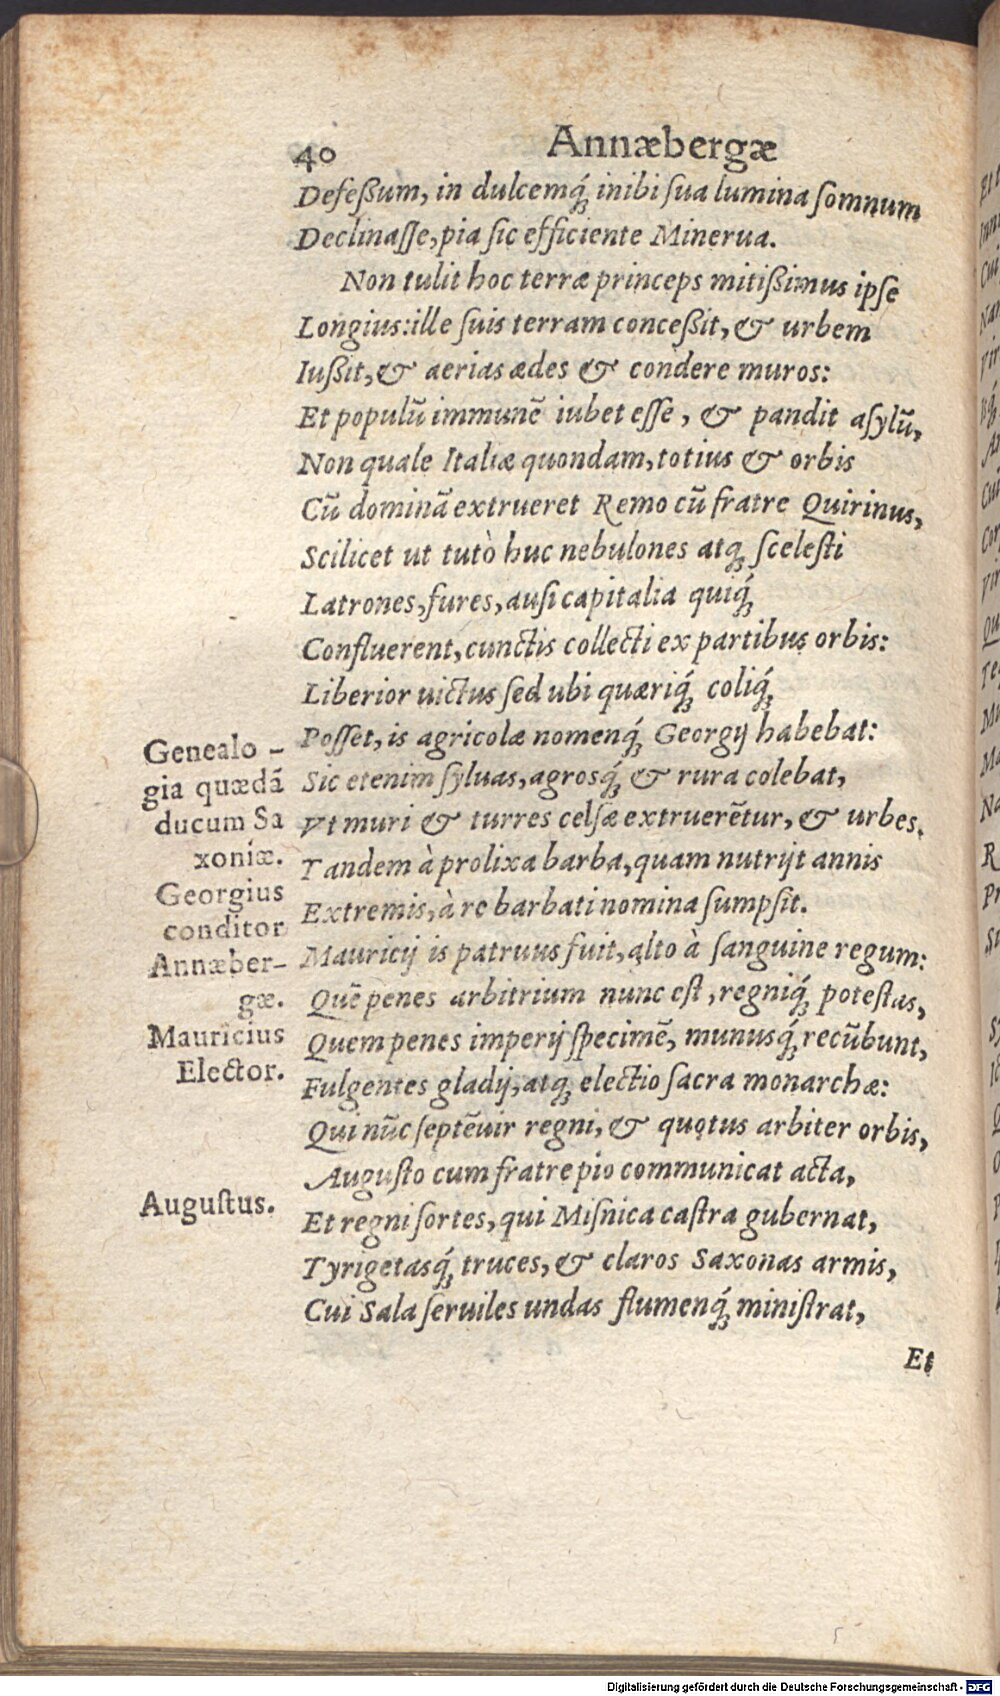 40 Annæbergæ
Defeßum, in dulcemq́; inibi ſua lumina ſomnum
Declinaſſe, pia ſic efficiente Minerua.
Non tulit hoc terræ princeps mitißimus ipſe
Longius: ille ſuis terram conceßit, & urbem
Iußit, & aerias ædes & condere muros:
Et populū immunē iubet eſſe, & pandit aſylū,
Non quale Italiæ quondam, totius & orbis
Cū dominā extrueret Remo cū fratre Quirinus,
Scilicet ut tutò huc nebulones atq; ſceleſti
Latrones, fures, auſi capitalia quiq́;
Confluerent, cunctis collecti ex partibus orbis:
Liberior uictus ſed ubi quæriq́; coliq́;
Poſſet, is agricolæ nomenq́; Georgij habebat:
Sic etenim ſyluas, agrosq́; & rura colebat,
Vt muri & turres celſæ extruerētur, & urbes.
Tandem à prolixa barba, quam nutrijt annis
Extremis, à re barbati nomina ſumpſit.
Mauricij is patruus fuit, alto à ſanguine regum:
Quē penes arbitrium nunc eſt, regniq́; poteſtas,
Quem penes imperij ſpecimē, munusq́; recūbunt,
Fulgentes gladij, atq; electio ſacra monarchæ:
Qui nūc ſeptēuir regni, & quotus arbiter orbis,
Auguſto cum fratre pio communicat acta,
Et regni ſortes, qui Miſnica caſtra gubernat,
Tyrigetasq́; truces, & claros Saxonas armis,
Cui Sala ſeruiles undas flumenq́; miniſtrat,
Et
Genealo-
gia quædā
ducum Sa
xoniæ.
Georgius
conditor
Annæber-
gæ.
Mauricius
Elector.
Auguſtus.
Digitalisierung gefördert durch die Deutsche Forschungsgemeinschaft - DFG